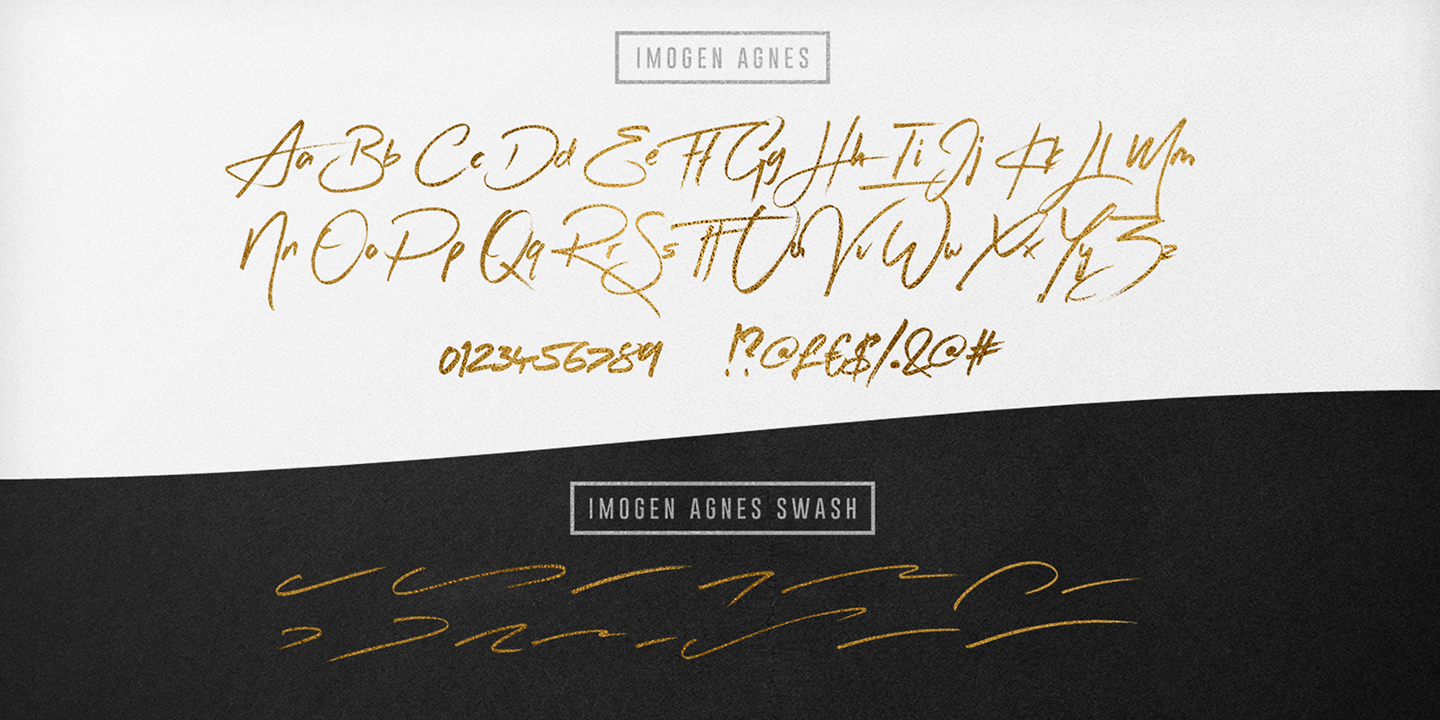 IMOGEN AGNES
Aa Bb Cc Dd Ee Ff Gg Hh Ii Jj Kk Ll Mm
Nn Oo Pp Qq Rr Ss Tt Uu Vv Ww Xx Yy Zz
0123456789 !?@£€$/.&@#
IMOGEN AGNES SWASH